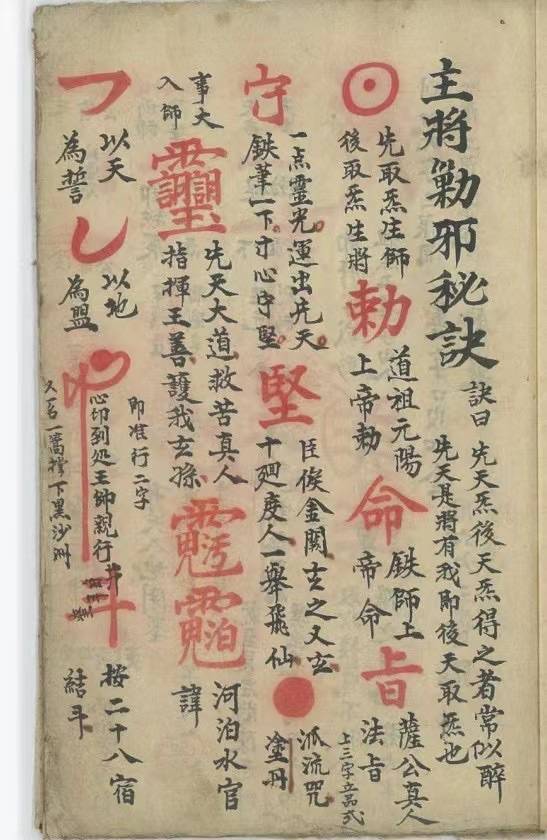 主將勦邪秘訣
訣曰
先天炁後天炁得之者常似醉
先天是將有我即後天取炁也
先取炁注師
後取炁生將
勅
道祖元陽
上帝勅
命
鉄師上
帝命
旨
薩公真人
法旨
上三字立品式
守
一点靈光運出先天
鉄筆一下寸心守堅
堅
臣俟金闕玄之又玄
十廻度人一舉飛仙
派流咒
塗丹
事大
入師
先天大道救苦真人
指揮王善護我玄孫
河泊水官
諱
以天
為誓
以地
為盟
即准行二字
心印到処王帥親行
又名一篙撐下黑沙洲
斗
按二十八宿
結斗